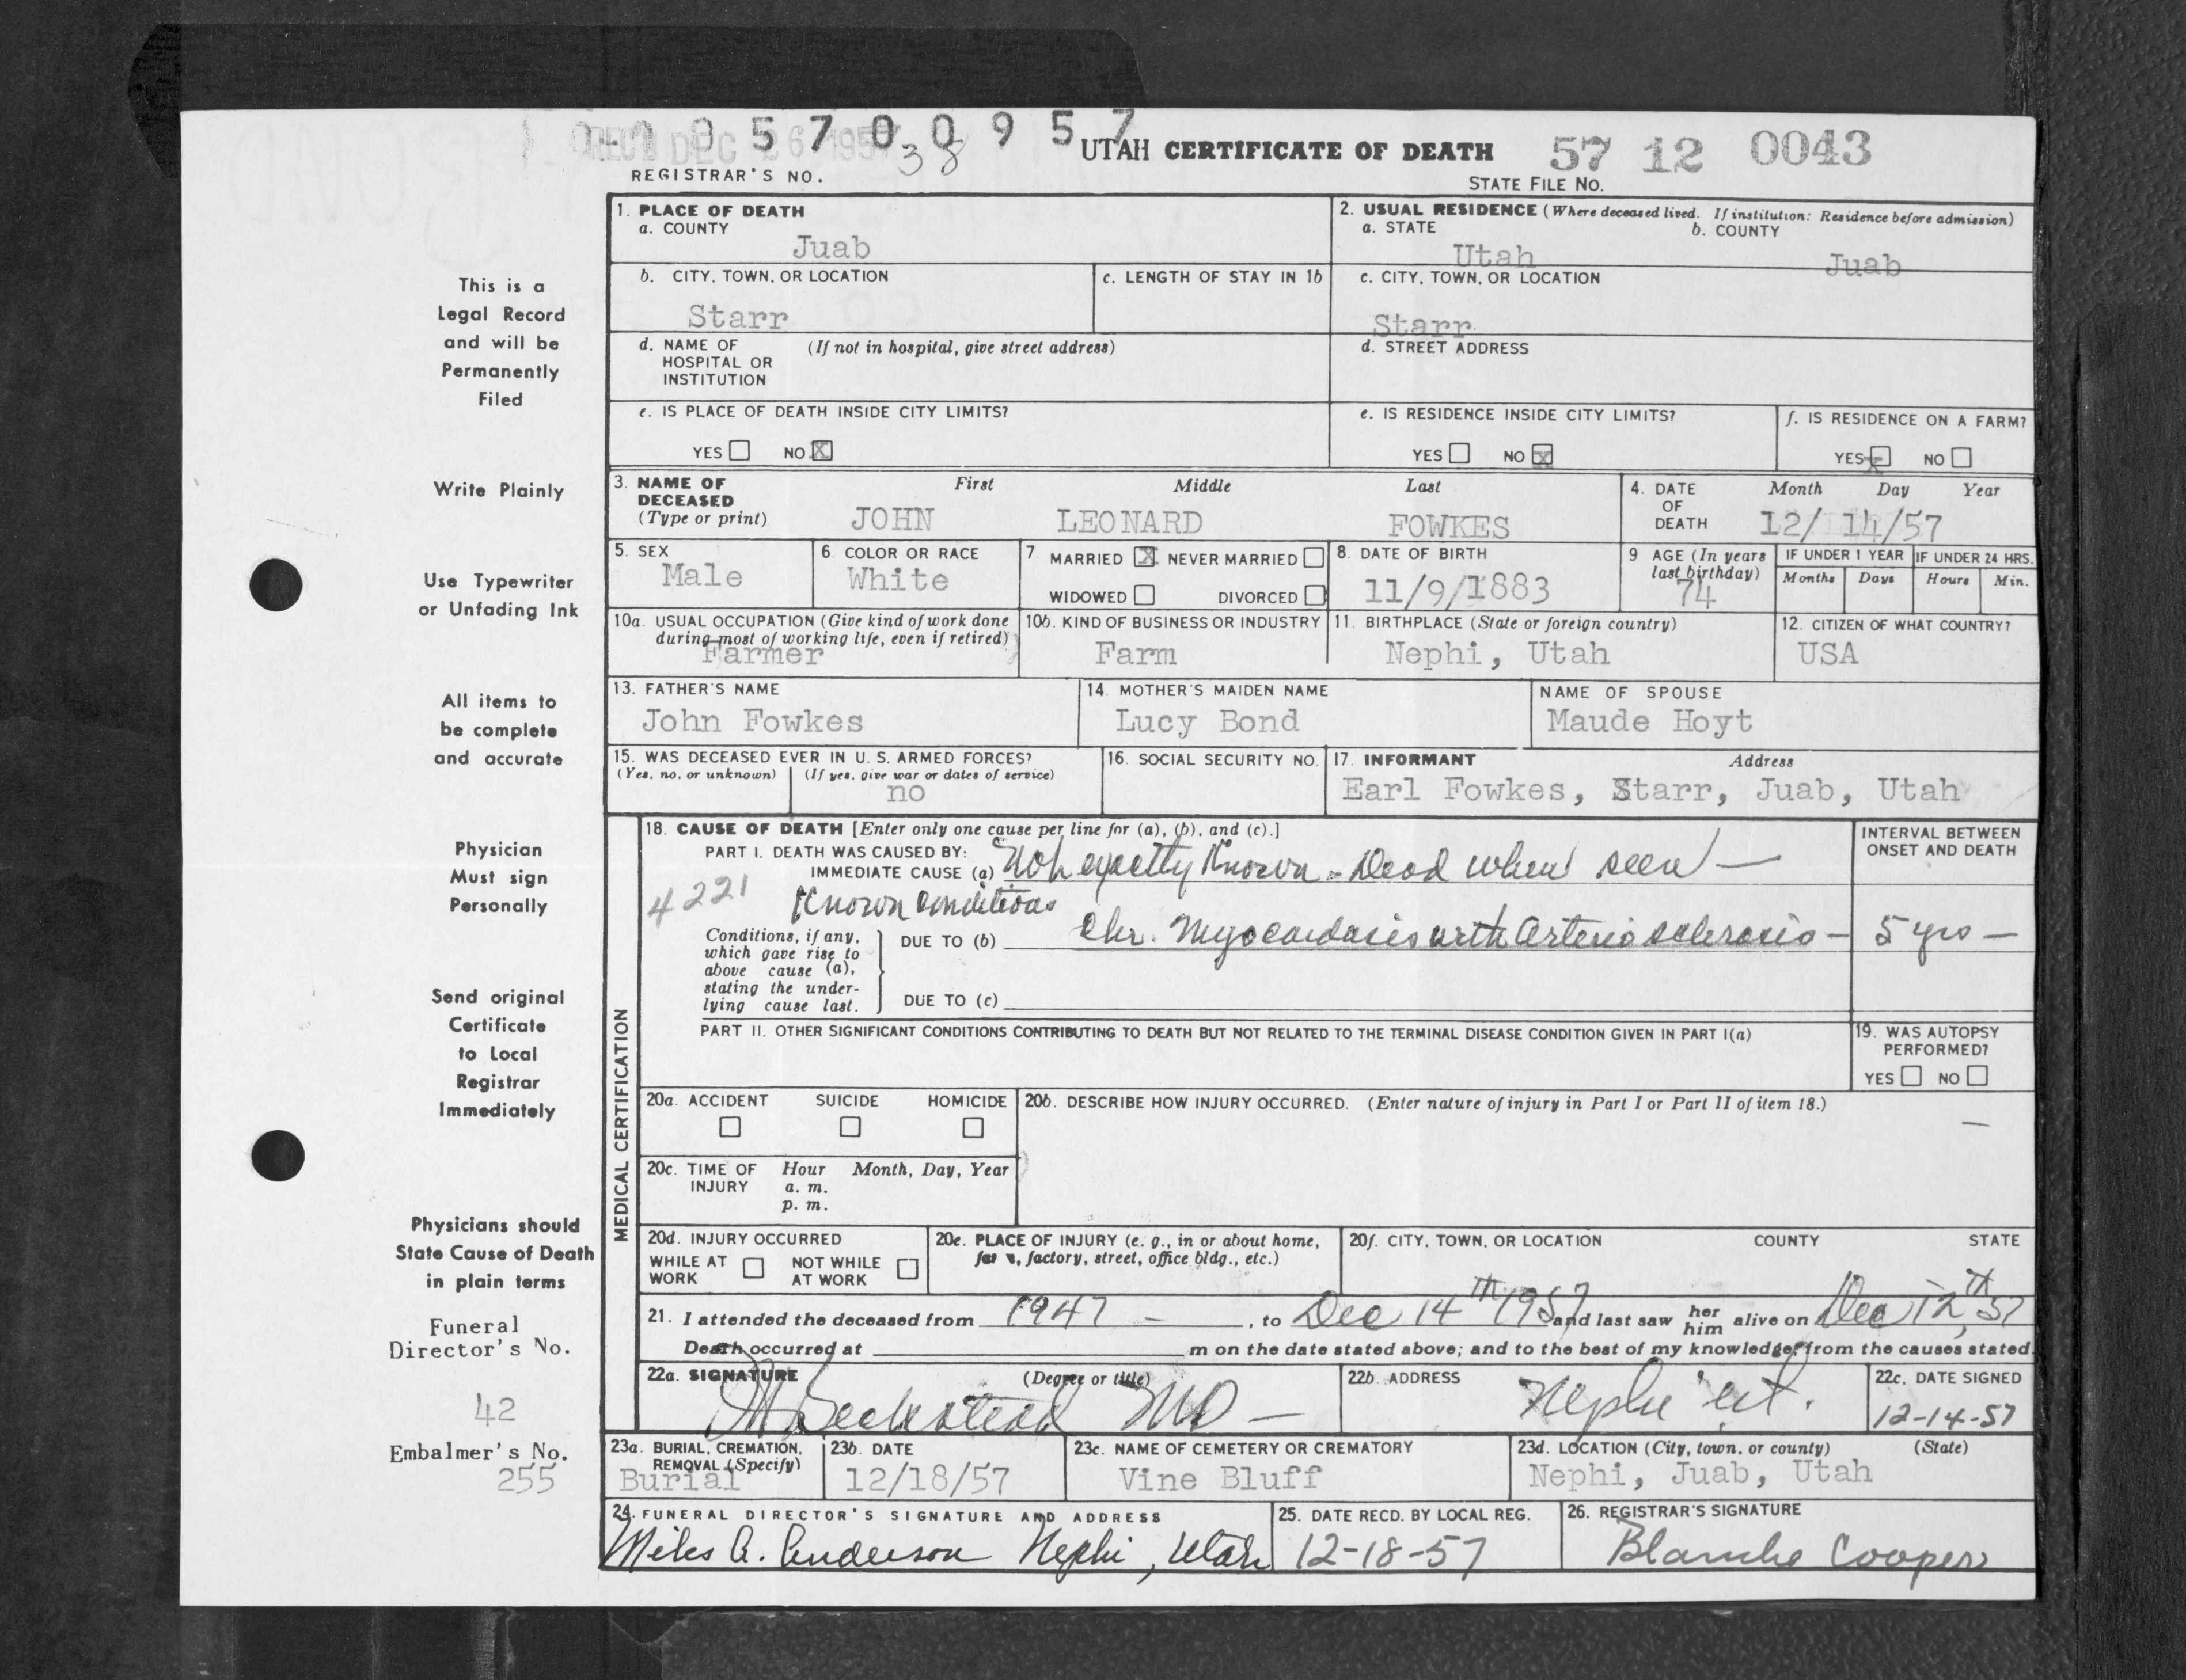 0 0 5 7 0 0 9 5 7
REC'D DEC 26 1957
REGISTRAR'S NO. 38
UTAH CERTIFICATE OF DEATH
57 12 0043
STATE FILE NO.
1. PLACE OF DEATH
a. COUNTY
Juab
2. USUAL RESIDENCE (Where deceased lived. If institution: Residence before admission)
a. STATE
Utah
b. COUNTY
Juab
b. CITY, TOWN, OR LOCATION
Starr
c. LENGTH OF STAY IN 1b
c. CITY, TOWN, OR LOCATION
Starr
d. NAME OF HOSPITAL OR INSTITUTION
(If not in hospital, give street address)
d. STREET ADDRESS
e. IS PLACE OF DEATH INSIDE CITY LIMITS?
YES NO X
e. IS RESIDENCE INSIDE CITY LIMITS?
YES NO X
f. IS RESIDENCE ON A FARM?
YES X NO
3. NAME OF DECEASED (Type or print)
First Middle Last
JOHN LEONARD FOWKES
4. DATE OF DEATH
Month Day Year
12/ 14/57
5. SEX
Male
6. COLOR OR RACE
White
7 MARRIED X NEVER MARRIED
WIDOWED DIVORCED
8. DATE OF BIRTH
11/9/1883
9 AGE (In years last birthday)
74
IF UNDER 1 YEAR
Months Days
IF UNDER 24 HRS.
Hours Min.
10a. USUAL OCCUPATION (Give kind of work done during most of working life, even if retired)
Farmer
10b. KIND OF BUSINESS OR INDUSTRY
Farm
11. BIRTHPLACE (State or foreign country)
Nephi, Utah
12. CITIZEN OF WHAT COUNTRY?
USA
13. FATHER'S NAME
John Fowkes
14. MOTHER'S MAIDEN NAME
Lucy Bond
NAME OF SPOUSE
Maude Hoyt
15. WAS DECEASED EVER IN U. S. ARMED FORCES?
(Yes, no, or unknown) (If yes, give war or dates of service)
no
16. SOCIAL SECURITY NO.
17. INFORMANT Address
Earl Fowkes, Starr, Juab, Utah
MEDICAL CERTIFICATION
18. CAUSE OF DEATH [Enter only one cause per line for (a), (b), and (c).]
PART I. DEATH WAS CAUSED BY:
IMMEDIATE CAUSE (a) Not exactly Known - Dead when seen —
4221
Known Conditions
Conditions, if any, which gave rise to above cause (a), stating the underlying cause last.
DUE TO (b) Chr. Myocardosis with Arterio sclerosis —
DUE TO (c)
INTERVAL BETWEEN ONSET AND DEATH
5 yrs —
PART II. OTHER SIGNIFICANT CONDITIONS CONTRIBUTING TO DEATH BUT NOT RELATED TO THE TERMINAL DISEASE CONDITION GIVEN IN PART I(a)
19. WAS AUTOPSY PERFORMED?
YES NO
20a. ACCIDENT SUICIDE HOMICIDE
20b. DESCRIBE HOW INJURY OCCURRED. (Enter nature of injury in Part I or Part II of item 18.)
—
20c. TIME OF INJURY
Hour Month, Day, Year
a. m.
p. m.
20d. INJURY OCCURRED
WHILE AT WORK NOT WHILE AT WORK
20e. PLACE OF INJURY (e. g., in or about home, farm, factory, street, office bldg., etc.)
20f. CITY, TOWN, OR LOCATION COUNTY STATE
21. I attended the deceased from 1947 - , to Dec 14th 1957 and last saw her him alive on Dec 12th, 57
Death occurred at m on the date stated above; and to the best of my knowledge, from the causes stated.
22a. SIGNATURE (Degree or title)
Beckstead MD —
22b. ADDRESS
Nephi Ut.
22c. DATE SIGNED
12-14-57
23a. BURIAL, CREMATION, REMOVAL (Specify)
Burial
23b. DATE
12/18/57
23c. NAME OF CEMETERY OR CREMATORY
Vine Bluff
23d. LOCATION (City, town, or county) (State)
Nephi, Juab, Utah
24. FUNERAL DIRECTOR'S SIGNATURE AND ADDRESS
Miles A. Anderson Nephi, Utah
25. DATE RECD. BY LOCAL REG.
12-18-57
26. REGISTRAR'S SIGNATURE
Blanche Cooper
This is a
Legal Record
and will be
Permanently
Filed
Write Plainly
Use Typewriter
or Unfading Ink
All items to
be complete
and accurate
Physician
Must sign
Personally
Send original
Certificate
to Local
Registrar
Immediately
Physicians should
State Cause of Death
in plain terms
Funeral
Director's No.
42
Embalmer's No.
255